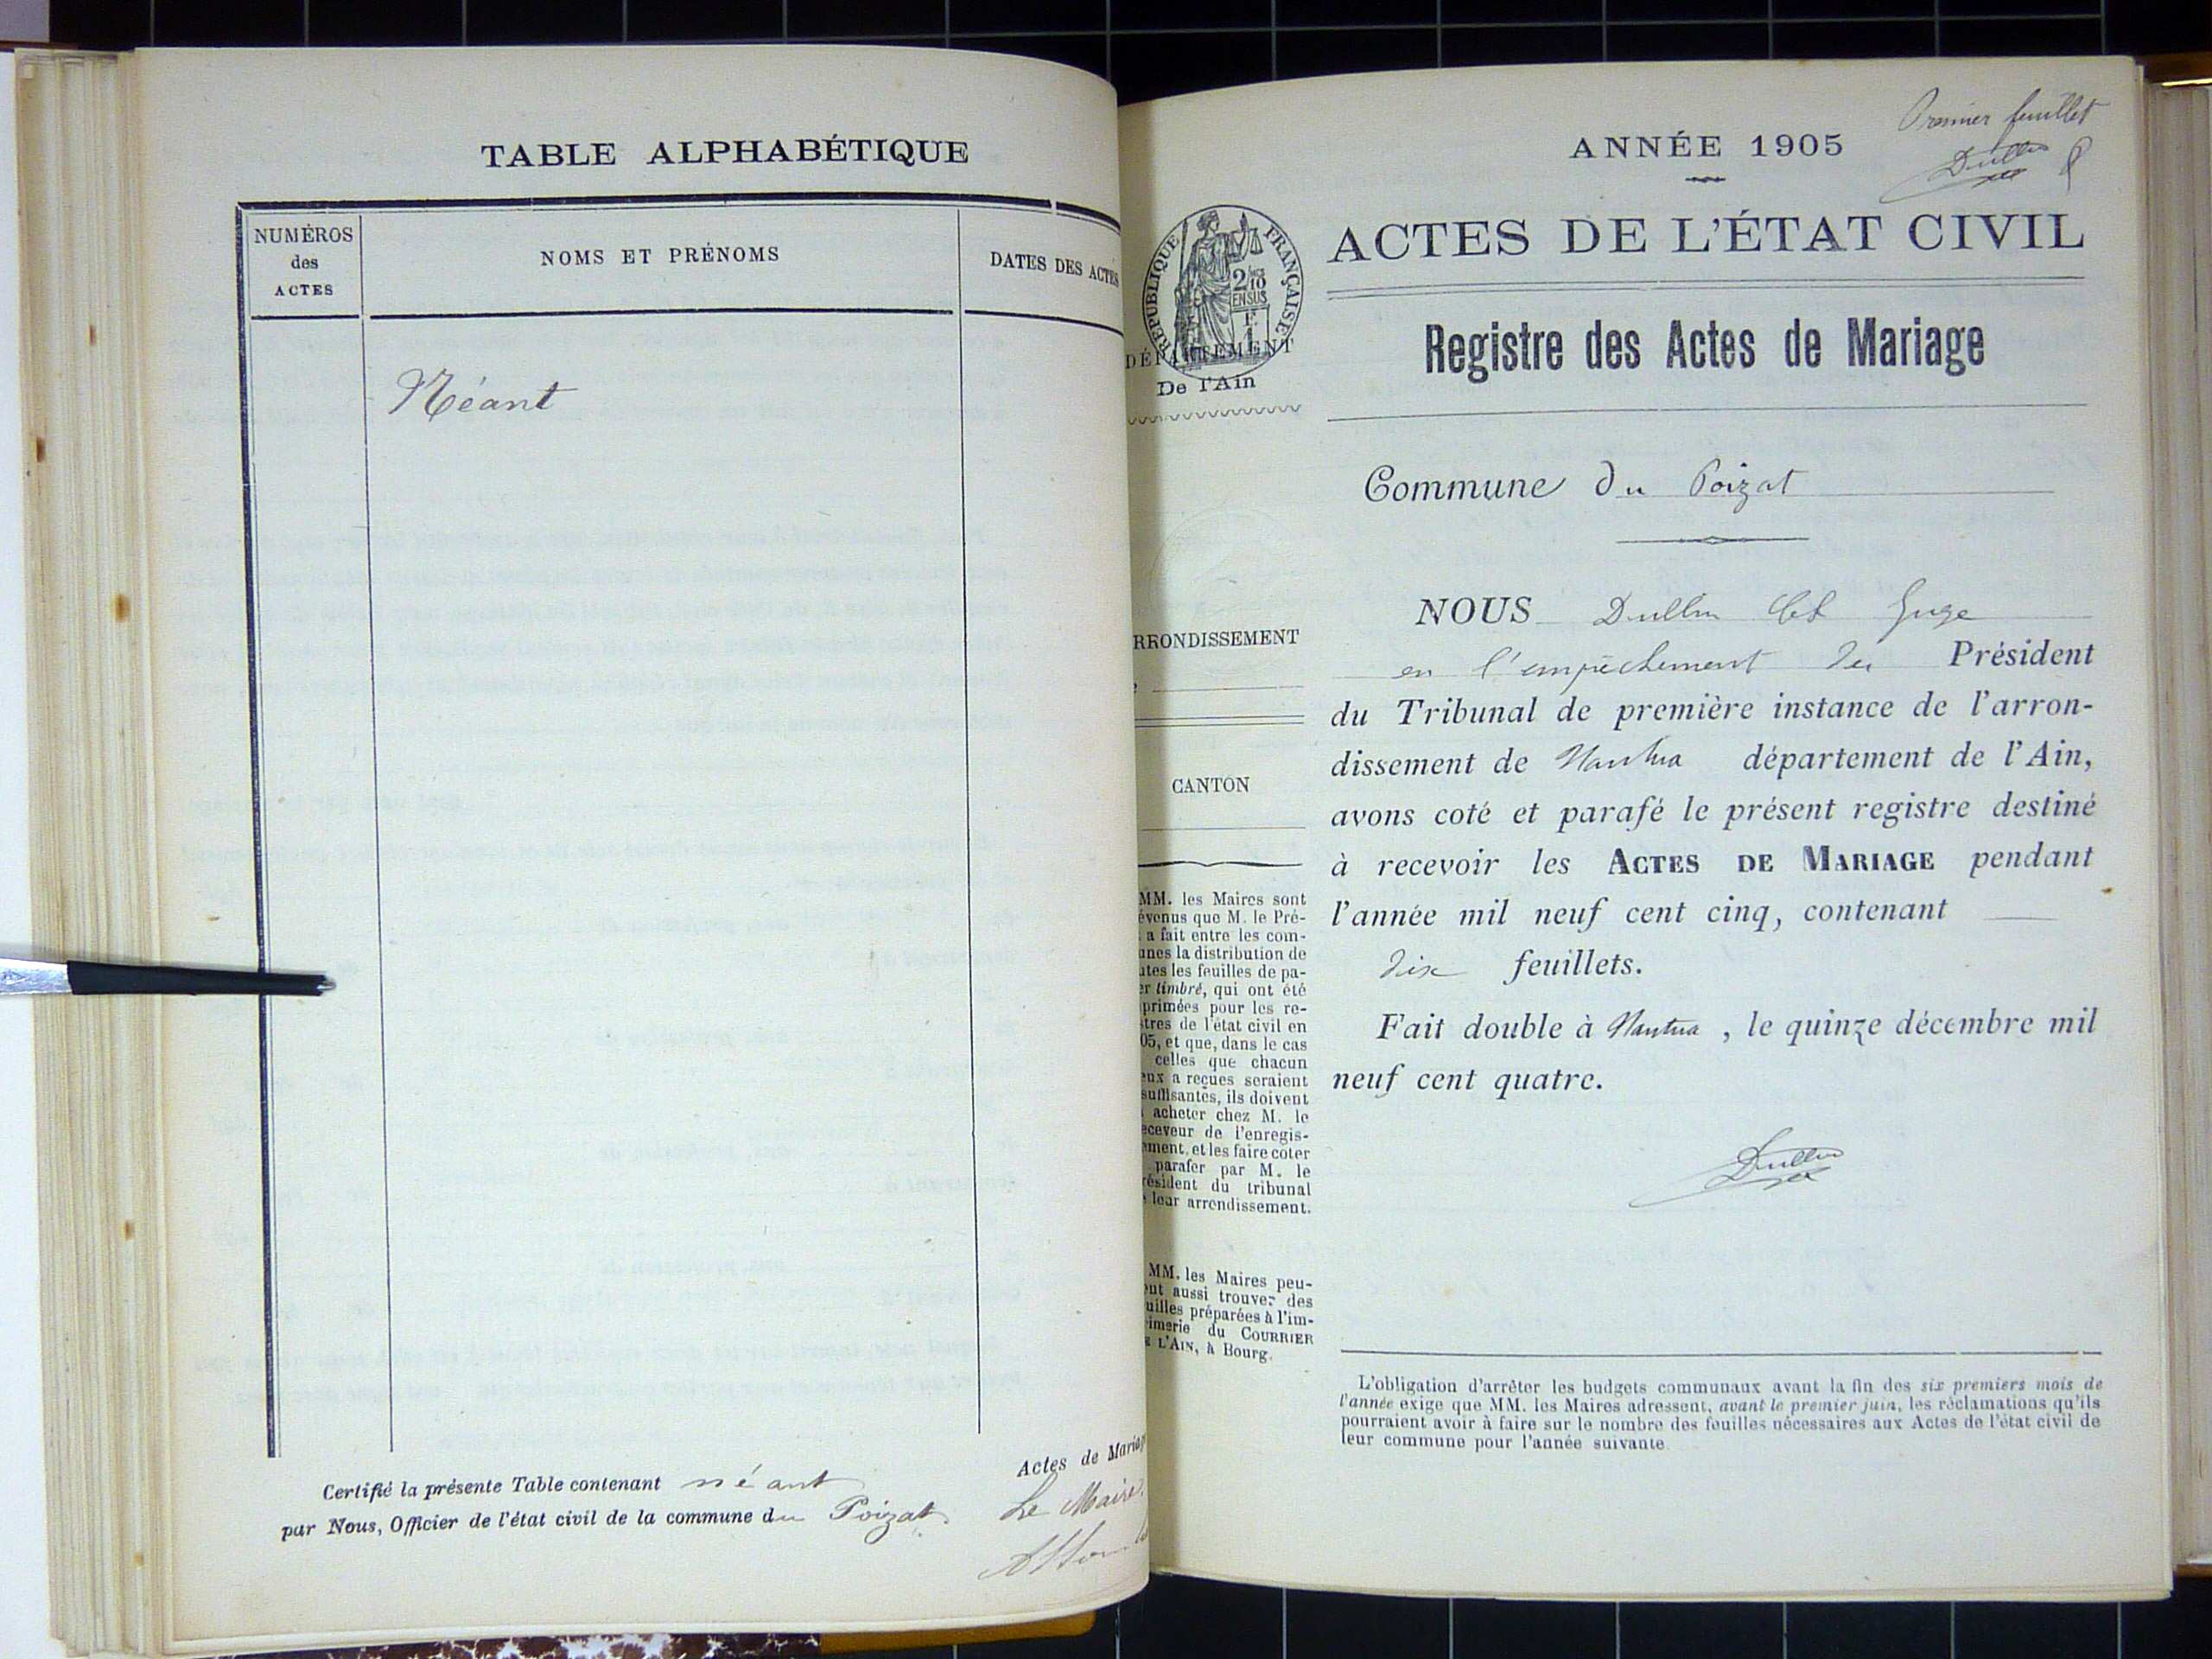 TABLE ALPHABÉTIQUE
NUMÉROS
des
ACTES
NOMS ET PRÉNOMS
DATES DES ACTES
Néant
Certifié la présente Table contenant néant
Actes de Mariage
par Nous, Officier de l'état civil de la commune du Poizat.
Le Maire,
Premier feuillet
Dullin
ANNÉE 1905
ACTES DE L'ÉTAT CIVIL
RÉPUBLIQUE FRANÇAISE
2/10
EN SUS
DÉPARTEMENT
De l'Ain
Registre des Actes de Mariage
Commune du Poizat
RRONDISSEMENT
CANTON
MM. les Maires sont
évenus que M. le Pré-
a fait entre les com-
unes la distribution de
utes les feuilles de pa-
er timbré, qui ont été
primées pour les re-
stres de l'état civil en
05, et que, dans le cas
celles que chacun
eux a reçues seraient
suffisantes, ils doivent
acheter chez M. le
eceveur de l'enregis-
ement, et les faire coter
parafer par M. le
résident du tribunal
leur arrondissement.
MM. les Maires peu-
ent aussi trouver des
uilles préparées à l'im-
imerie du COURRIER
E L'AIN, à Bourg.
NOUS Dullin Juge
en l'empêchement du Président
du Tribunal de première instance de l'arron-
dissement de Nantua département de l'Ain,
avons coté et parafé le présent registre destiné
à recevoir les ACTES DE MARIAGE pendant
l'année mil neuf cent cinq, contenant
dix feuillets.
Fait double à Nantua, le quinze décembre mil
neuf cent quatre.
Dullin
L'obligation d'arrêter les budgets communaux avant la fin des six premiers mois de
l'année exige que MM. les Maires adressent, avant le premier juin, les réclamations qu'ils
pourraient avoir à faire sur le nombre des feuilles nécessaires aux Actes de l'état civil de
leur commune pour l'année suivante.